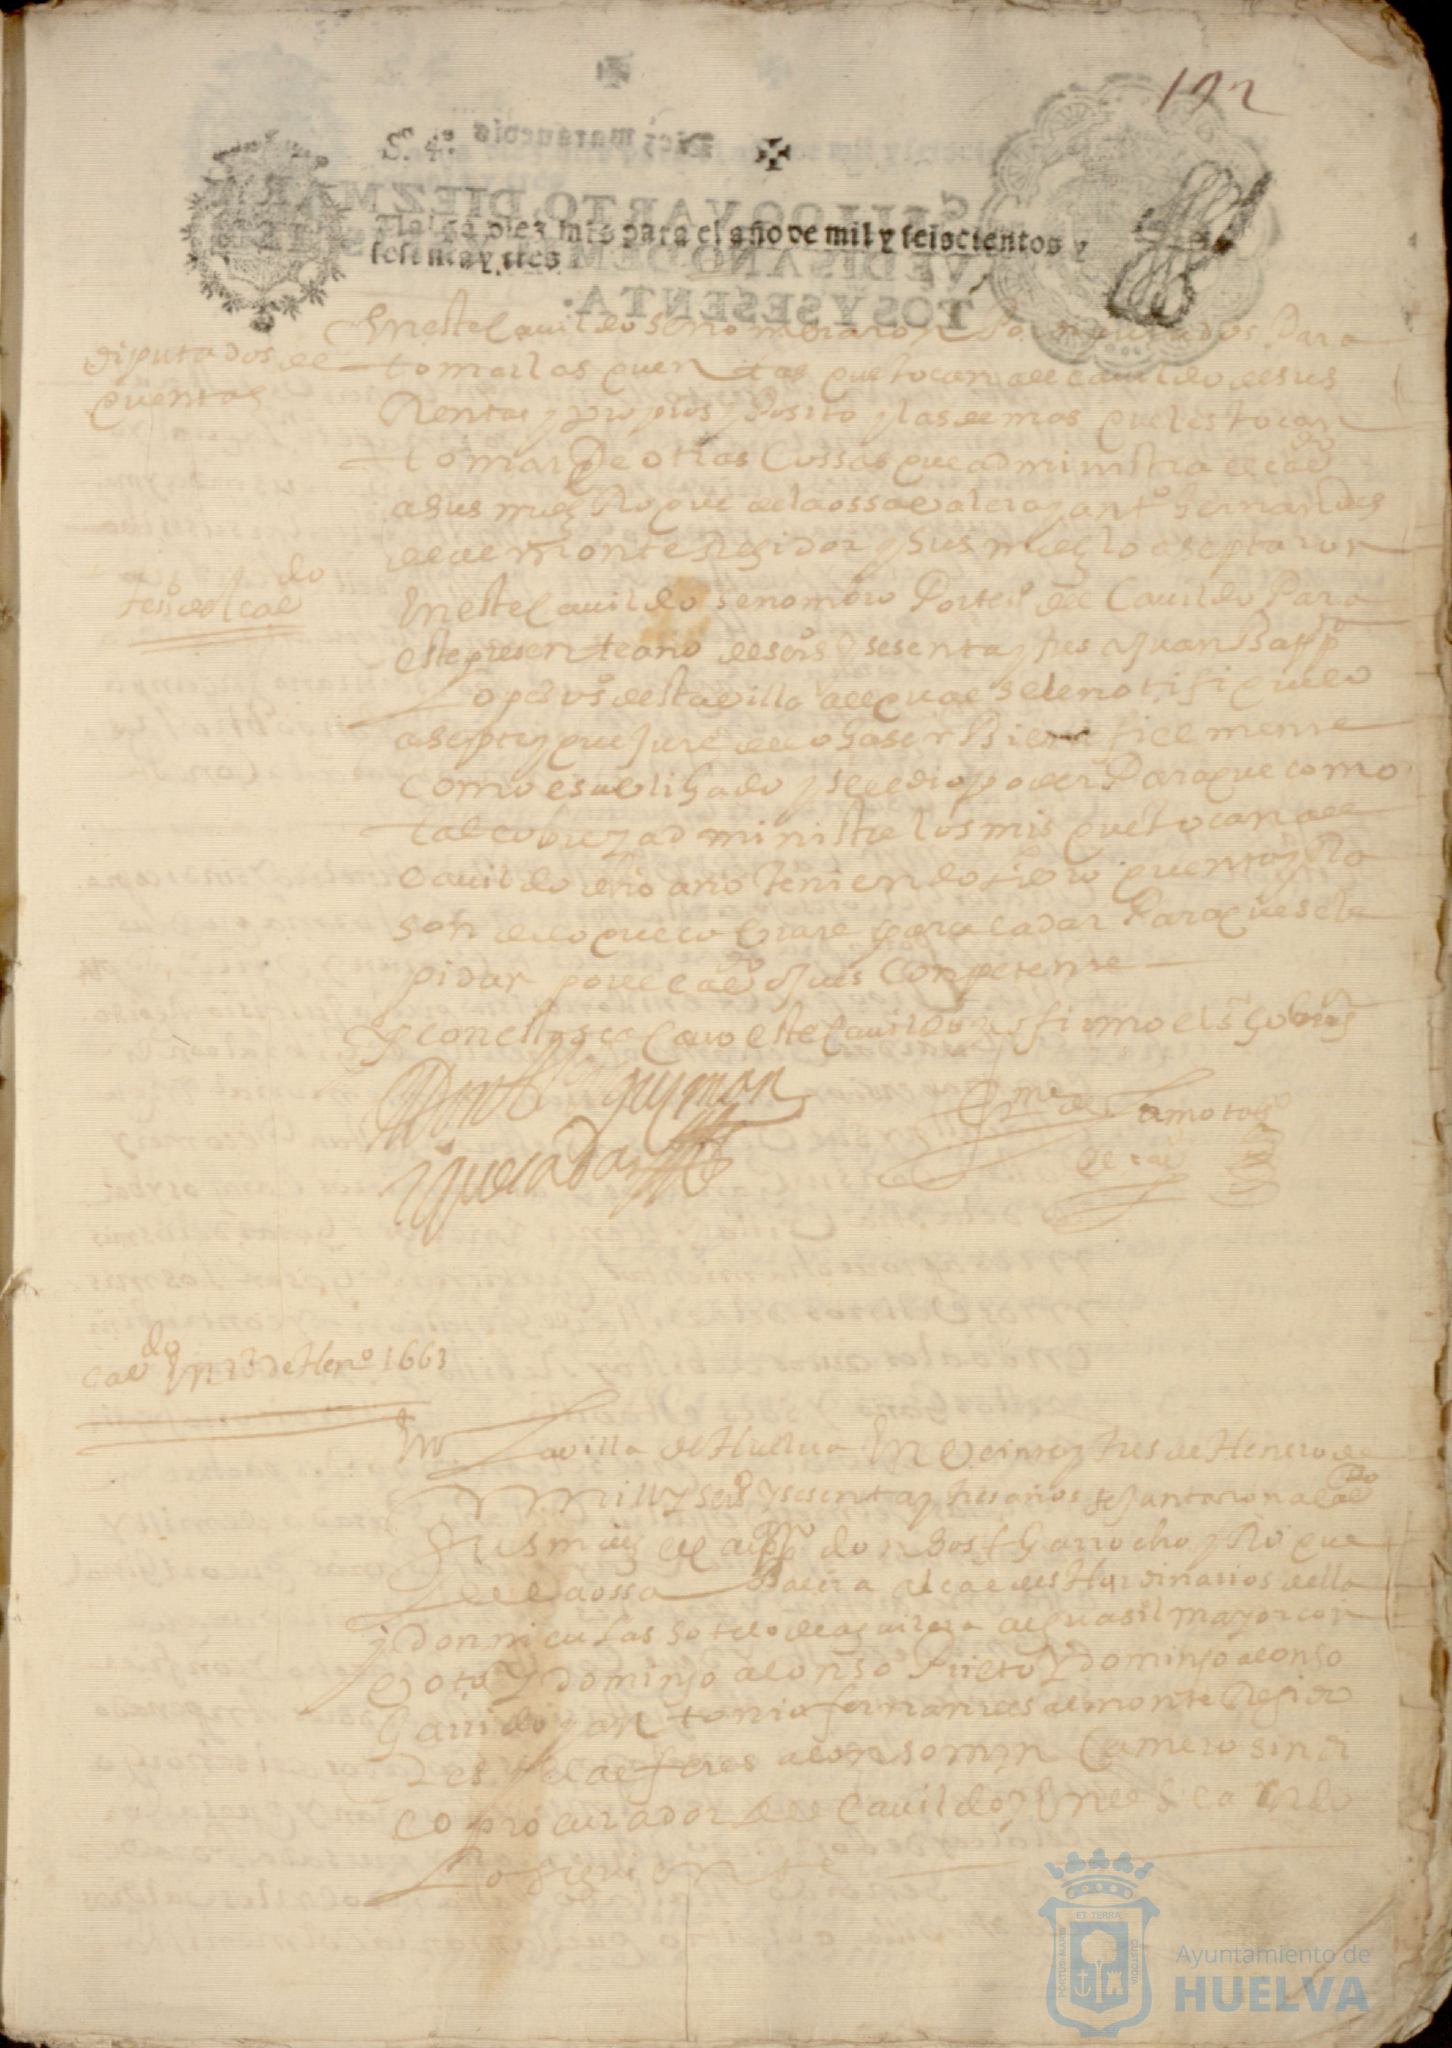 192
S. 4º
Valga diez mrs para el año de mil y seiscientos y
sesenta y tres
diputados de
quentas
En este Cavildo se nombraron Por diputados Para
tomar las quentas que tocan al cavildo de sus
Rentas y propios y Posito y las demas que les tocan
tomar De otras Cossas que administra el cavdo
a sus mds Roque de la ossa valera y antº hernandes
de almonte Regidor y sus mds lo aseptaron
tesº del cavdo
En este Cavildo se nombro Por tesº del Cavildo Para
este presente año de seisº sesenta y tres a Juan Bapta
Lopes vº desta villa al qual se le notifique lo
asepte y que Jure de lo haser Bien fielmente
como es obligado y se le dio poder Para que como
tal cobre y administre los mrs que tocan al
cavildo dho año teniendo libro quenta y Ra
son de lo que cobrare para la dar Para que se le
pidan por el cavdo o Jues Competente
Y con esto se acavo este Cavildo y lo firmo el sr Gobor
guzman
quesada
de la mota
de cavdo
cavdo En 23 de Henº 1663
En La villa de Huelva En Veinte y tres de Henero de
mill y seisº y sesenta y tres años se Juntaron a cavdo
Sus mds el cappn don Garrocho y Roque
de la ossa Valera alcaldes Hordinarios della
y don niculas sotelo de aguilera alguasil mayor con
voto y domingo alonso Prieto y domingo alonso
Garrido y antonio fernandes almonte Regido
res y el alferes alonso mrn Camero sindi
co procurador del Cavildo y En el se acordo
Lo siguiente
PORTUS MARIS
ET TERRA
CUSTODIA
Ayuntamiento de
HUELVA